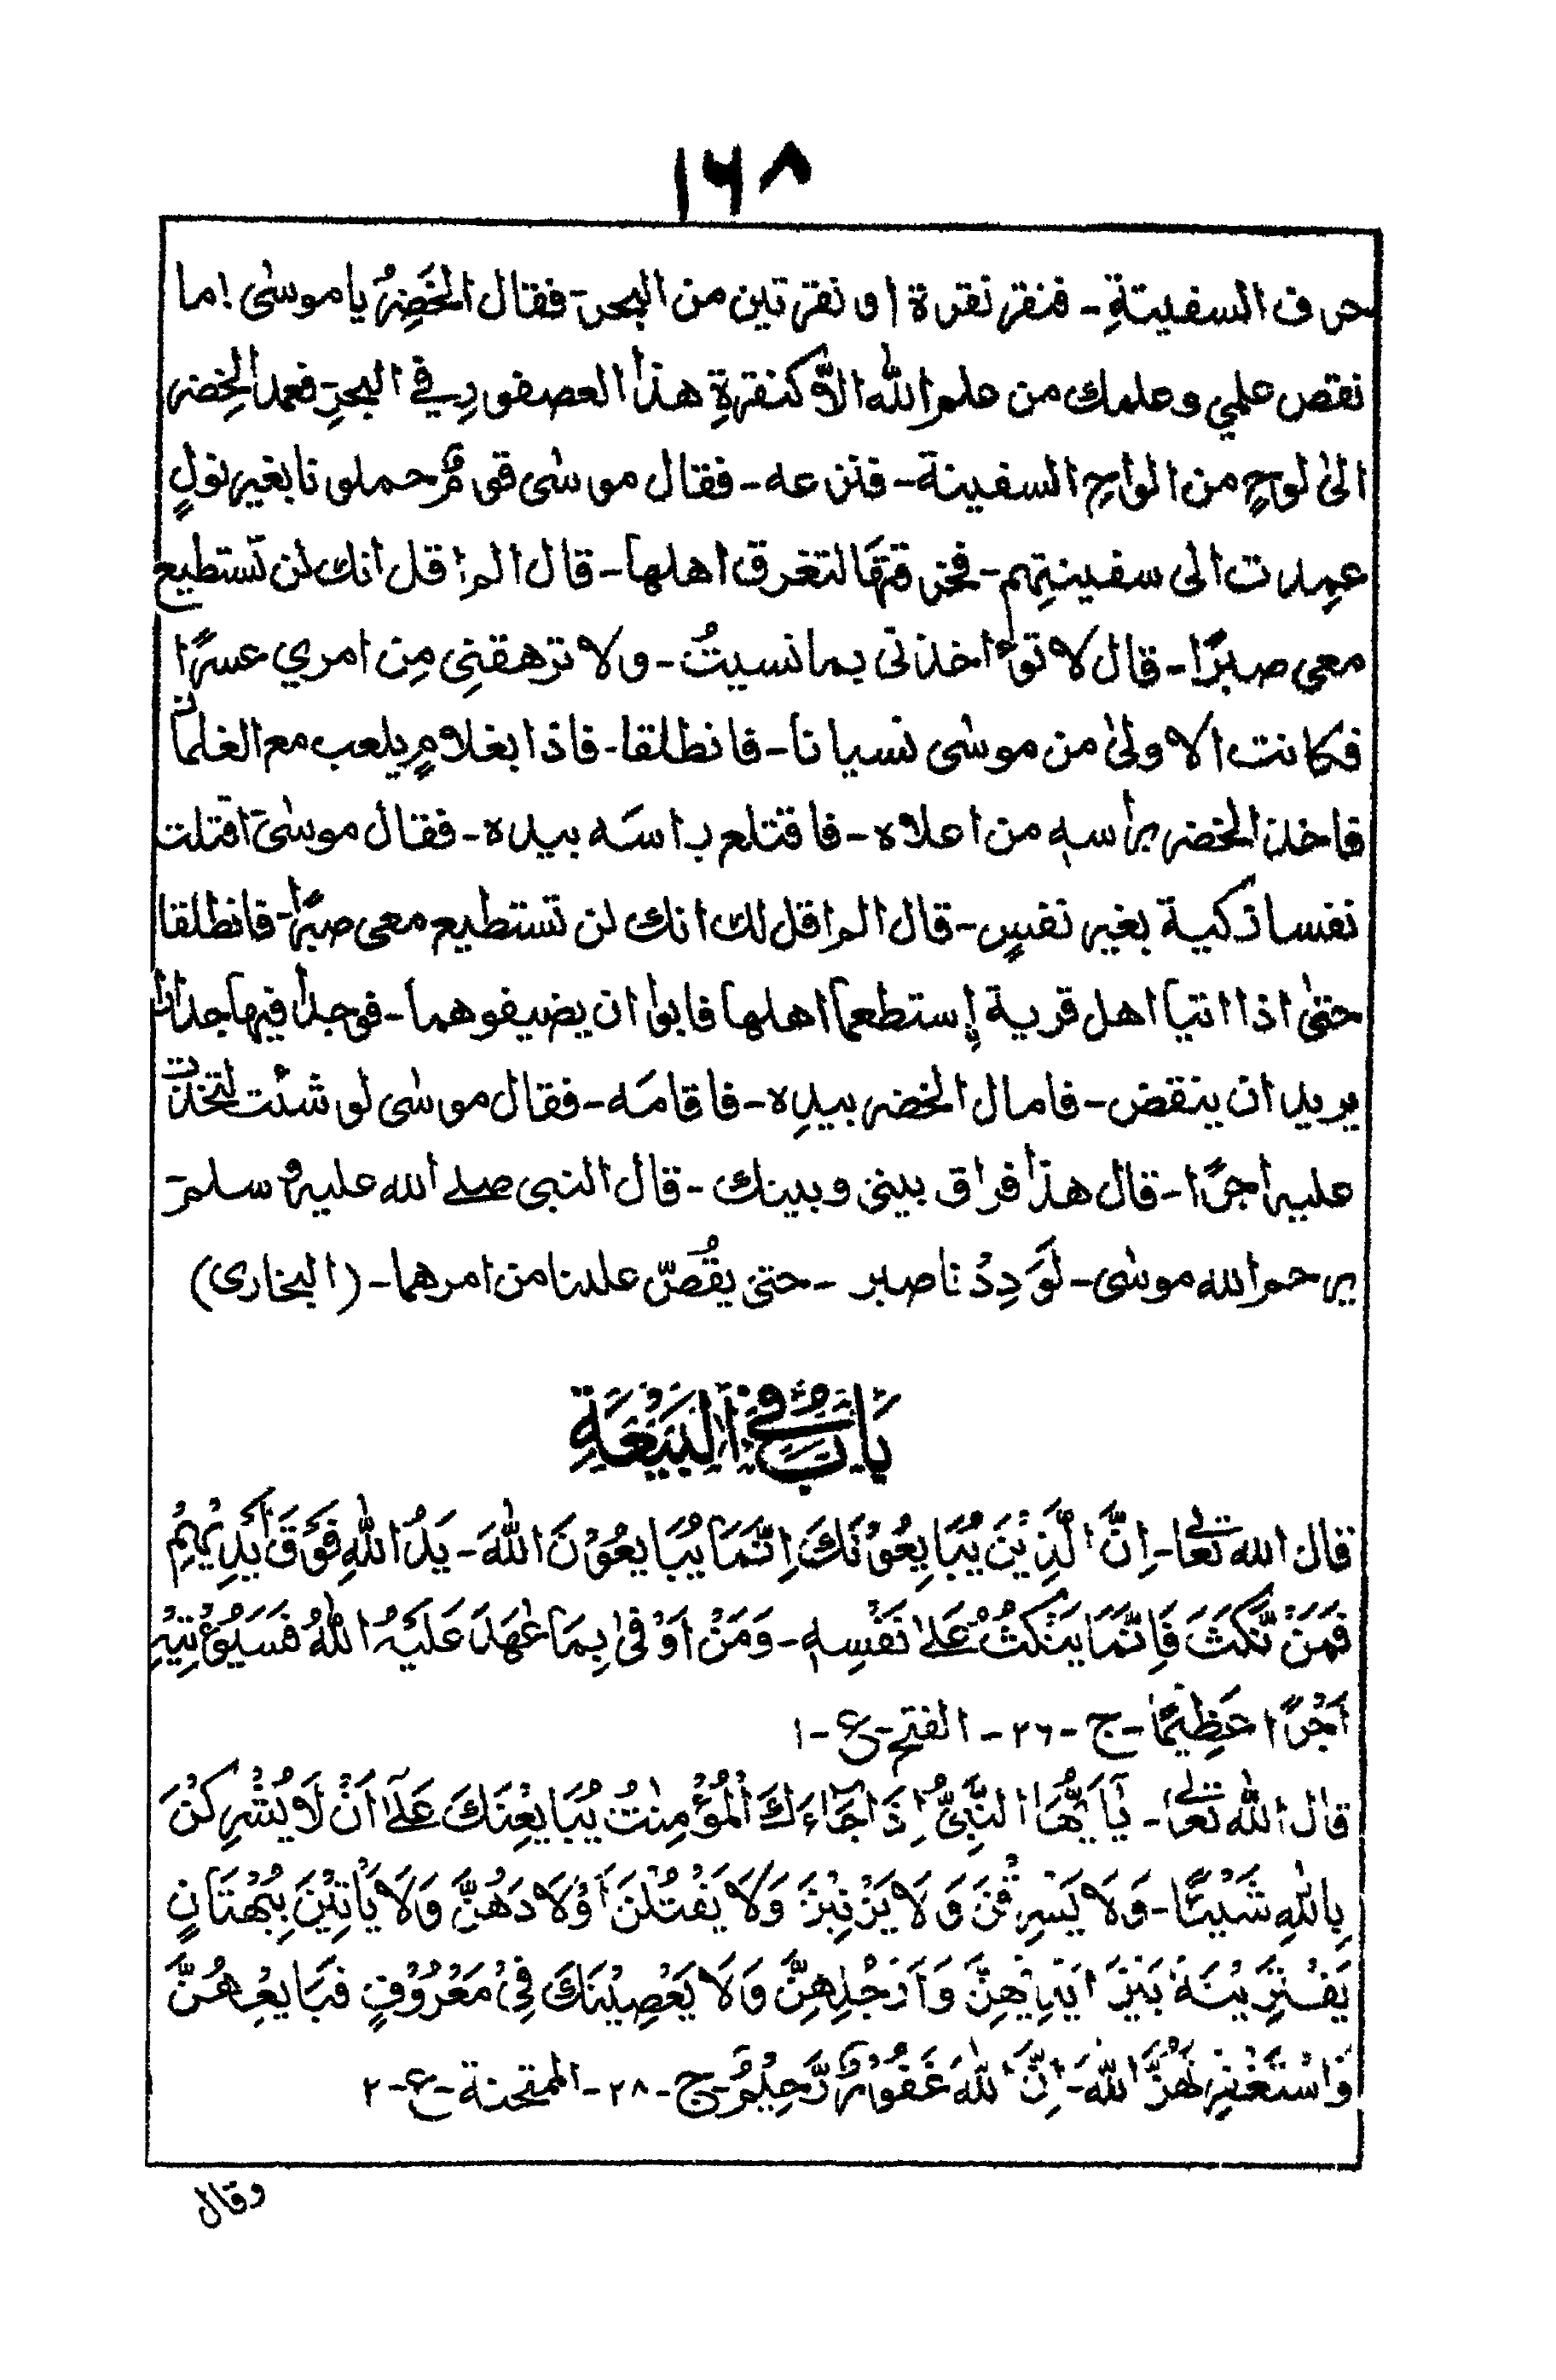 ۱۶۸
حرف السفينةِ۔ فنقر نقرة او نقرتين من البحر۔ فقال الخَضِرُ يا موسٰى! ما
نقص علمي وعلمك من علم اللّٰه الّا كنقرةِ هذا العصفورِ في البحرِ۔ فعمد الخِضر
الىٰ لوحٍ من الواحِ السفينة۔ فنزعه۔ فقال موسٰى قومٌ حملونا بغير نولٍ
عمِدت الى سفينتِهم۔ فخرقتَها لتغرق اهلها۔ قال الم اقل انك لن تستطيع
معي صبرًا۔ قال لا تؤاخذنى بما نسيتُ۔ ولا ترهقنِى مِن امري عسرًا
فكانت الاولىٰ من موسٰى نسيانا۔ فانطلقا۔ فاذا بغلامٍ يلعب مع الغلمان
فاخذ الخضر برأسهٖ من اعلاه۔ فاقتلع راسَه بيده۔ فقال موسٰى اقتلت
نفسا زكية بغير نفسٍ۔ قال الم اقل لك انك لن تستطيع معى صبرًا۔ فانطلقا
حتىٰ اذا اتيا اهل قرية إستطعما اهلها فابوا ان يضيفوهما۔ فوجدا فيها جدارا
يريد ان ينقض۔ فامال الخضر بيدِه۔ فاقامَه۔ فقال موسٰى لو شئت لتخذت
عليه اجرًا۔ قال هذا فراق بينى وبينك۔ قال النبى صلے الله عليه وسلم۔
يرحم الله موسٰى۔ لَوَدِدْنا صبر ۔ حتى يقُصّ علينا من امرهما۔ (البخارى)
بَابٌ فِي الْبَيْعَةِ
قال الله تعالٰى۔ اِنَّ الَّذِيْنَ يُبَايِعُوْنَكَ اِنَّمَا يُبَايِعُوْنَ اللّٰهَ۔ يَدُ اللّٰهِ فَوْقَ اَيْدِيْهِمْ
فَمَنْ نَّكَثَ فَاِنَّمَا يَنْكُثُ عَلٰى نَفْسِهٖ۔ وَمَنْ اَوْفٰى بِمَا عٰهَدَ عَلَيْهُ اللّٰهَ فَسَيُؤْتِيْهِ
اَجْرًا عَظِيْمًا۔ ج ۔ ۲۶ ۔ الفتح۔ ع۔ ۱
قال اللّٰه تعالٰى۔ يٰۤاَيُّهَا النَّبِيُّ اِذَا جَآءَكَ الْمُؤْمِنٰتُ يُبَايِعْنَكَ عَلٰٓى اَنْ لَا يُشْرِكْنَ
بِاللّٰهِ شَيْئًا۔ وَلَا يَسْرِقْنَ وَلَا يَزْنِيْنَ وَلَا يَقْتُلْنَ اَوْلَادَهُنَّ وَلَا يَأْتِيْنَ بِبُهْتَانٍ
يَفْتَرِيْنَهٗ بَيْنَ اَيْدِيْهِنَّ وَاَرْجُلِهِنَّ وَلَا يَعْصِيْنَكَ فِيْ مَعْرُوْفٍ فَبَايِعْهُنَّ
وَاسْتَغْفِرْ لَهُنَّ اللّٰهَ۔ اِنَّ اللّٰهَ غَفُوْرٌ رَّحِيْمٌ۔ ج۔ ۲۸۔ الممتحنة۔ ع۔ ۲
وقال